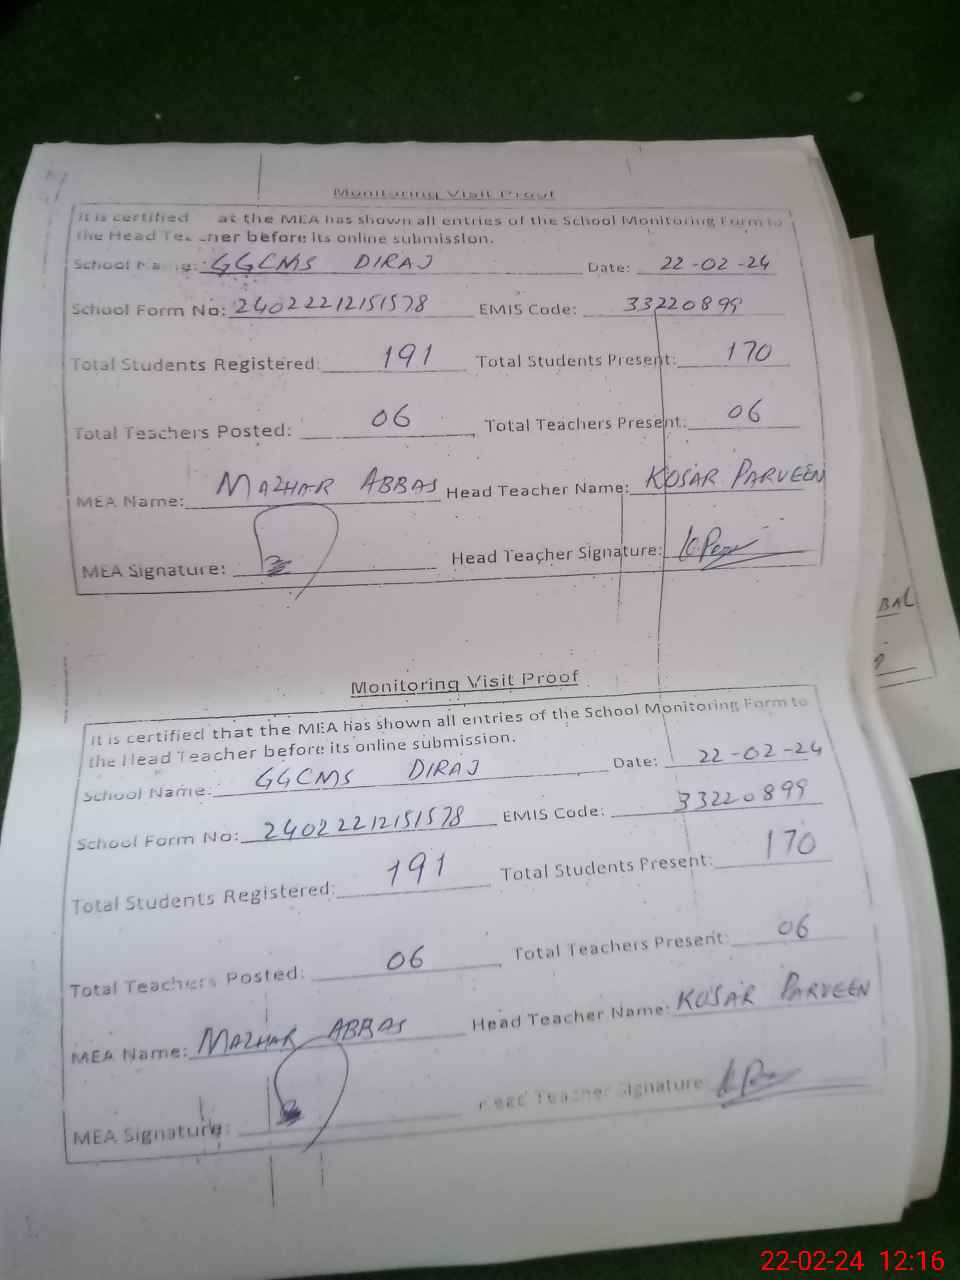 Monitoring Visit Proof
It is certified at the MEA has shown all entries of the School Monitoring Form to
the Head Teacher before its online submission.
School Name: GGCMS DIRAJ Date: 22-02-24
School Form No: 24022212151578 EMIS Code: 33220899
Total Students Registered: 191 Total Students Present: 170
Total Teachers Posted: 06 Total Teachers Present: 06
MEA Name: MAZHAR ABBAS Head Teacher Name: KOSAR PARVEEN
MEA Signature: Head Teacher Signature:
BAL
Monitoring Visit Proof
It is certified that the MEA has shown all entries of the School Monitoring Form to
the Head Teacher before its online submission.
School Name: GGCMS DIRAJ Date: 22-02-24
School Form No: 24022212151578 EMIS Code: 33220899
Total Students Registered: 191 Total Students Present: 170
Total Teachers Posted: 06 Total Teachers Present: 06
MEA Name: MAZHAR ABBAS Head Teacher Name: KOSAR PARVEEN
MEA Signature: Head Teacher Signature:
22-02-24 12:16